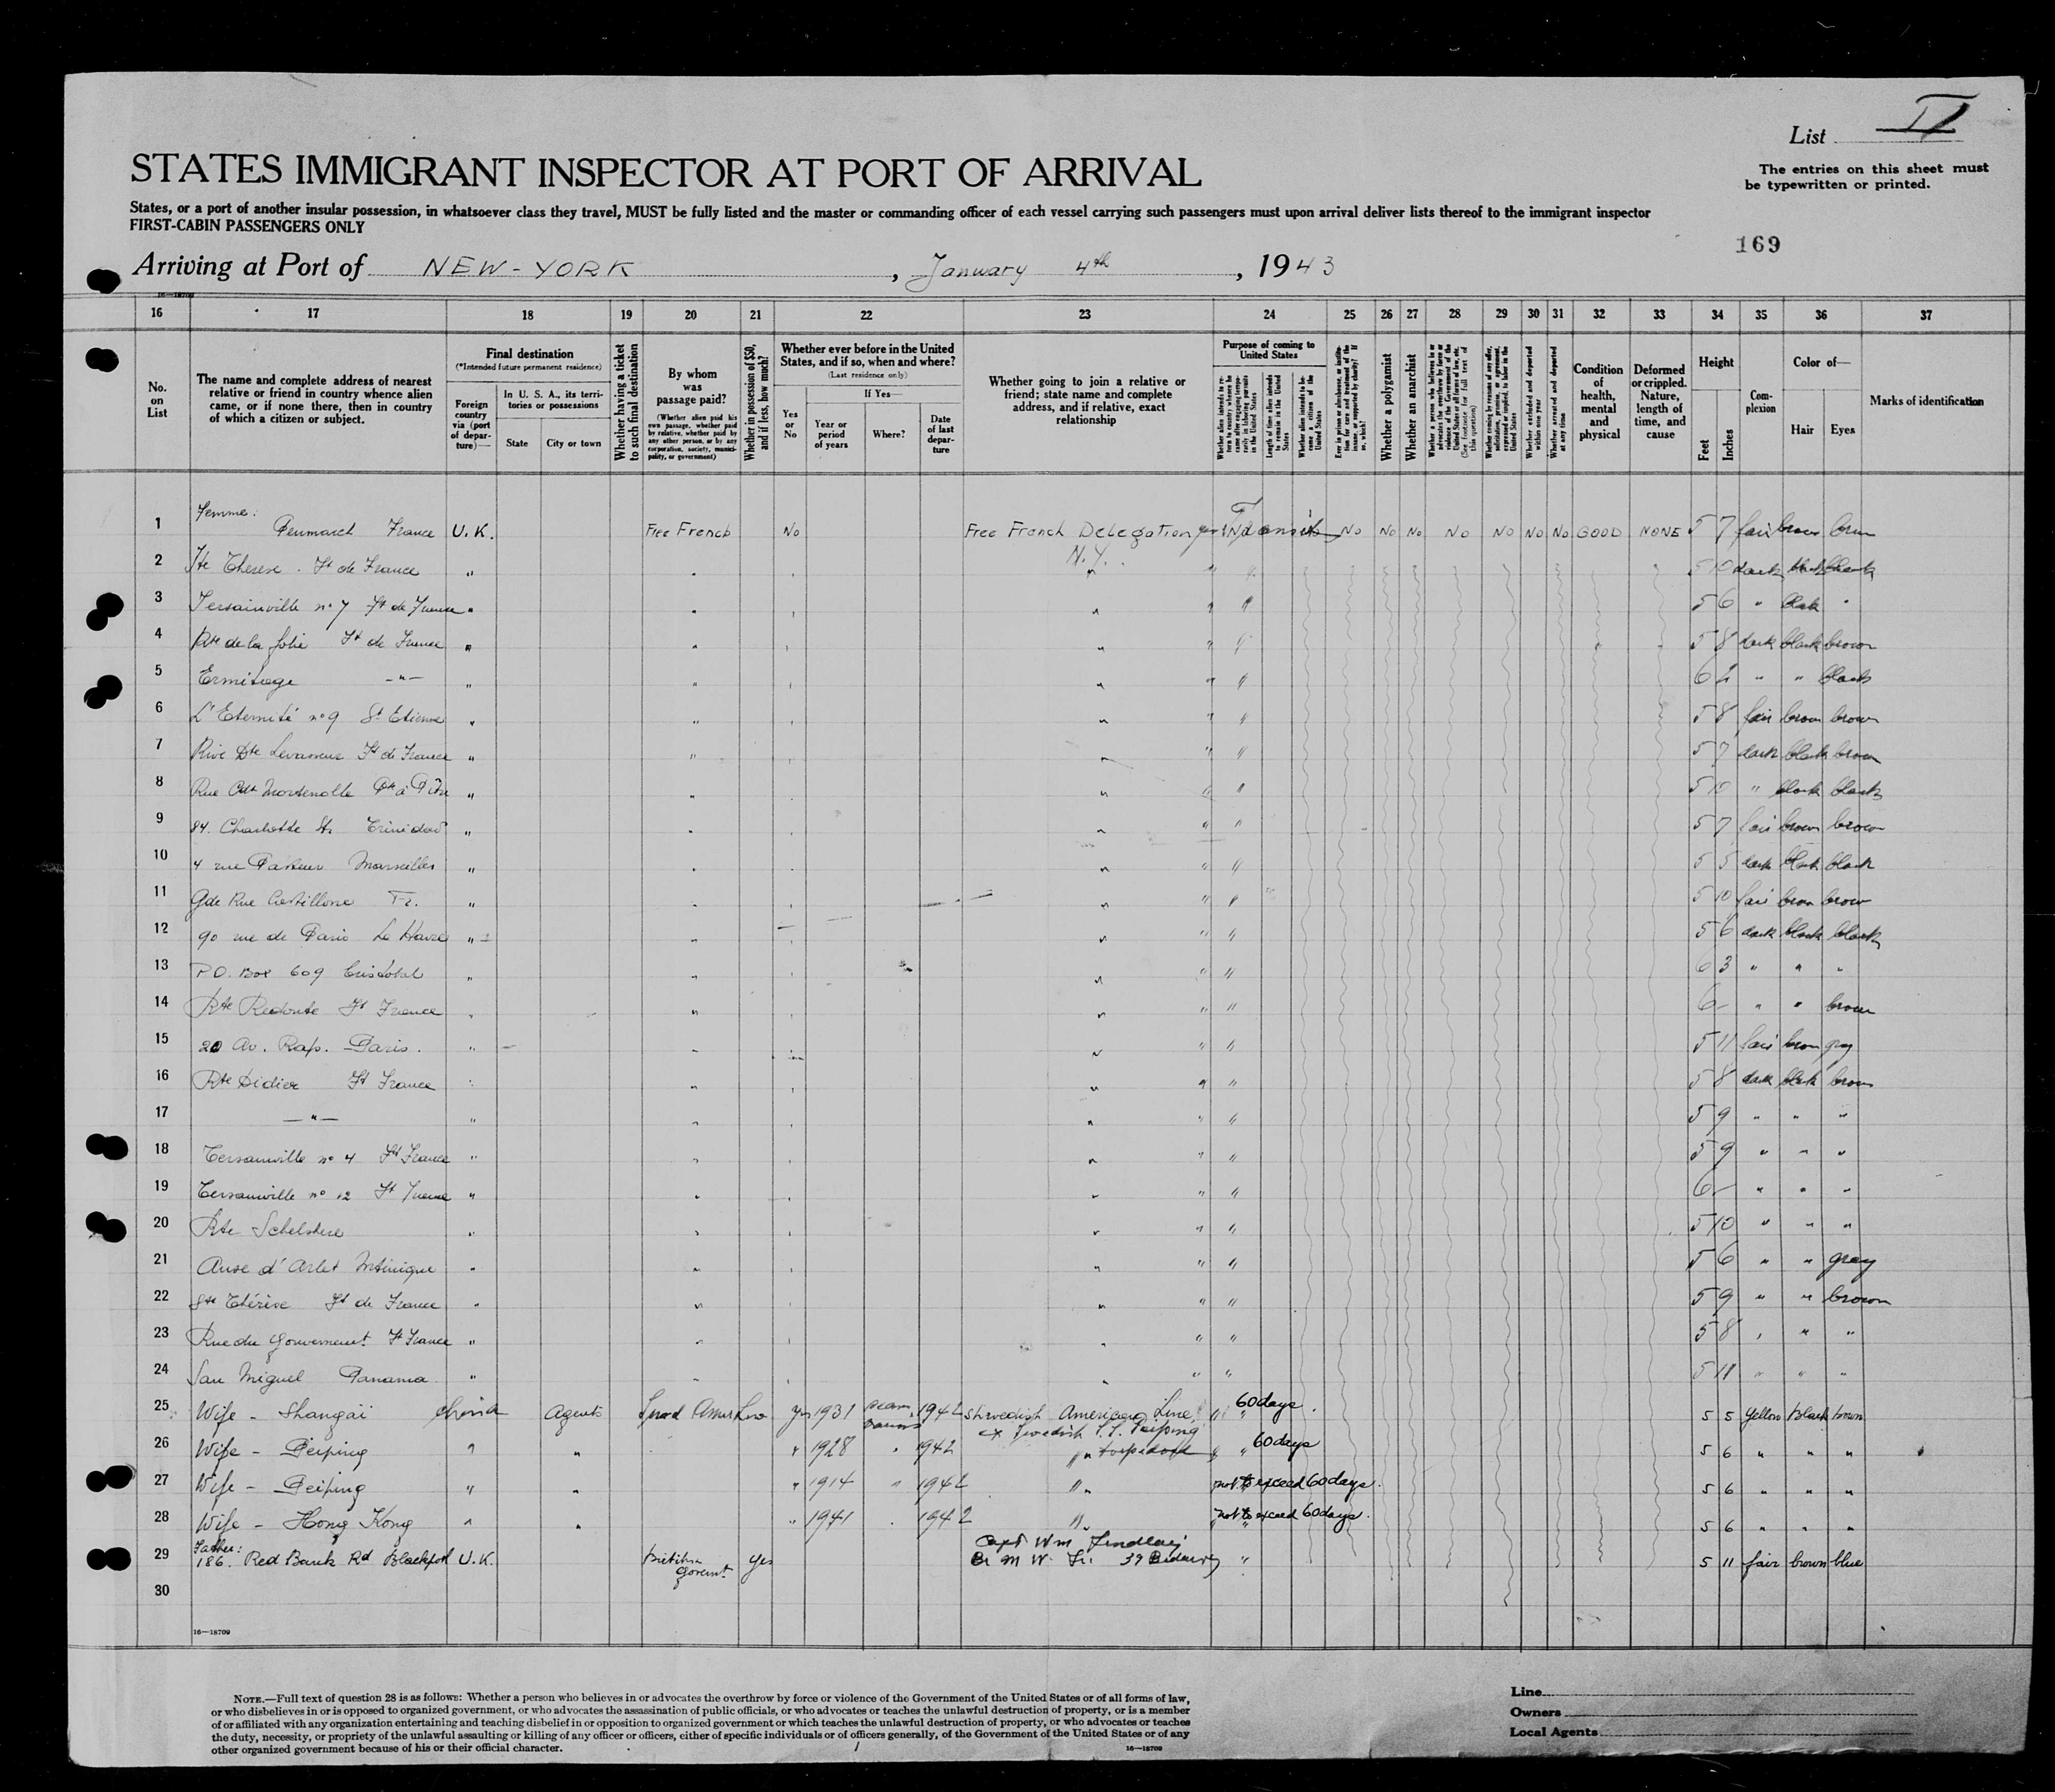 List II
The entries on this sheet must
be typewritten or printed.
STATES IMMIGRANT INSPECTOR AT PORT OF ARRIVAL
States, or a port of another insular possession, in whatsoever class they travel, MUST be fully listed and the master or commanding officer of each vessel carrying such passengers must upon arrival deliver lists thereof to the immigrant inspector
FIRST-CABIN PASSENGERS ONLY
169
Arriving at Port of NEW-YORK, January 4th, 1943
16—18709
16 17 18 19 20 21 22 23 24 25 26 27 28 29 30 31 32 33 34 35 36 37
No. on List
The name and complete address of nearest relative or friend in country whence alien came, or if none there, then in country of which a citizen or subject.
Final destination
(*Intended future permanent residence)
Foreign country via (port of departure)—
In U. S. A., its territories or possessions
State
City or town
Whether having a ticket to such final destination
By whom was passage paid?
(Whether alien paid his own passage, whether paid by relative, whether paid by any other person, or by any corporation, society, municipality, or government)
Whether in possession of $50, and if less, how much?
Whether ever before in the United States, and if so, when and where?
(Last residence only)
Yes or No
If Yes—
Year or period of years
Where?
Date of last departure
Whether going to join a relative or friend; state name and complete address, and if relative, exact relationship
Purpose of coming to United States
Length of time alien intends to remain in the United States
Whether alien intends to become a citizen of the United States
Whether a polygamist
Whether an anarchist
Whether excluded and deported within one year
Whether arrested and deported at any time
Condition of health, mental and physical
Deformed or crippled. Nature, length of time, and cause
Height
Feet
Inches
Complexion
Color of—
Hair
Eyes
Marks of identification
1 Femme: Penmarch France U.K. Free French No Free French Delegation N.Y. Transit No No No No No No No GOOD NONE 5 7 fair brown brown
2 Ste Therese. Ft de France " 5 10 dark black black
3 Tersainville no 7 Ft de France " 5 6 " black "
4 Rte de la folie Ft de France " 5 8 dark black brown
5 Ermitage -"- " 6 2 " " black
6 L'Eternité no 9 St Etienne " 5 8 fair brown brown
7 Rive Dte Levasseur Ft de France " 5 7 dark black brown
8 Rue Cdt Mortenolle Pte à Pitre " 5 10 " black black
9 84. Charlotte St. Trinidad " 5 7 fair brown brown
10 4 rue Pasteur Marseilles " 5 5 dark black black
11 Gde Rue Castillone Fr. " 5 10 fair brown brown
12 90 rue de Paris Le Havre " 5 6 dark black black
13 P.O. Box 609 Cristobal " 6 3 " " "
14 Rte Redoute Ft France " 6 - " " brown
15 20 Av. Rap. Paris. " 5 11 fair brown gray
16 Rte Didier Ft France " 5 8 dark black brown
17 -"- " 5 9 " " "
18 Tersainville no 4 Ft France " 5 9 " " "
19 Tersainville no 12 Ft France " 6 - " " "
20 Rte Schelshere " 5 10 " " "
21 Anse d'Arlet Mtinique " 5 6 " " gray
22 Ste Thérèse Ft de France " 5 9 " " brown
23 Rue du Gouvernemt Ft France " 5 8 " " "
24 San Miguel Panama " 5 11 " " "
25 Wife - Shangaï China Agents yes 1931 1942 Swedish American Line 60 days 5 5 yellow black brown
ex Swedish S.S. Peiping
26 Wife - Peiping " " " 1928 " 1942 " torpedoed 60 days 5 6 " " "
27 Wife - Peiping " " " 1914 " 1942 " not to exceed 60 days 5 6 " " "
28 Wife - Hong Kong " " " 1941 " 1942 " not to exceed 60 days 5 6 " " "
29 Father: 186. Red Bank Rd Blackpool U.K. British Governt yes Capt Wm Findlay 5 11 fair brown blue
30
16—18709
NOTE.—Full text of question 28 is as follows: Whether a person who believes in or advocates the overthrow by force or violence of the Government of the United States or of all forms of law,
or who disbelieves in or is opposed to organized government, or who advocates the assassination of public officials, or who advocates or teaches the unlawful destruction of property, or is a member
of or affiliated with any organization entertaining and teaching disbelief in or opposition to organized government or which teaches the unlawful destruction of property, or who advocates or teaches
the duty, necessity, or propriety of the unlawful assaulting or killing of any officer or officers, either of specific individuals or of officers generally, of the Government of the United States or of any
other organized government because of his or their official character.
16—18709
Line
Owners
Local Agents